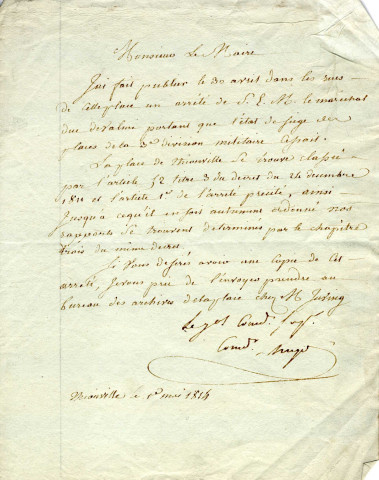 Monsieur Le Maire
J'ai fait publier le 30 avril dans les rues
de cette place un arrêté de S. E. M. le maréchal
duc de Valmi portant que l'état de siège des
places de la 3e division militaire cessait.
La place de Thionville se trouve classée
par l'article 52 titre 3 du decret du 24 decembre
1811 et l'article 1er de l'arrêté précité, ainsi
jusqu'à ce qu'il en soit autrement ordonné nos
rapports se trouvent determinés par le chapitre
trois du même decret.
Si vous desirés avoir une copie de cet
arrêté, je vous prie de l'envoyer prendre au
bureau des archives de la place chez M
Le gal Comdt
Comdt Hugo
Thionville le 1er mai 1814